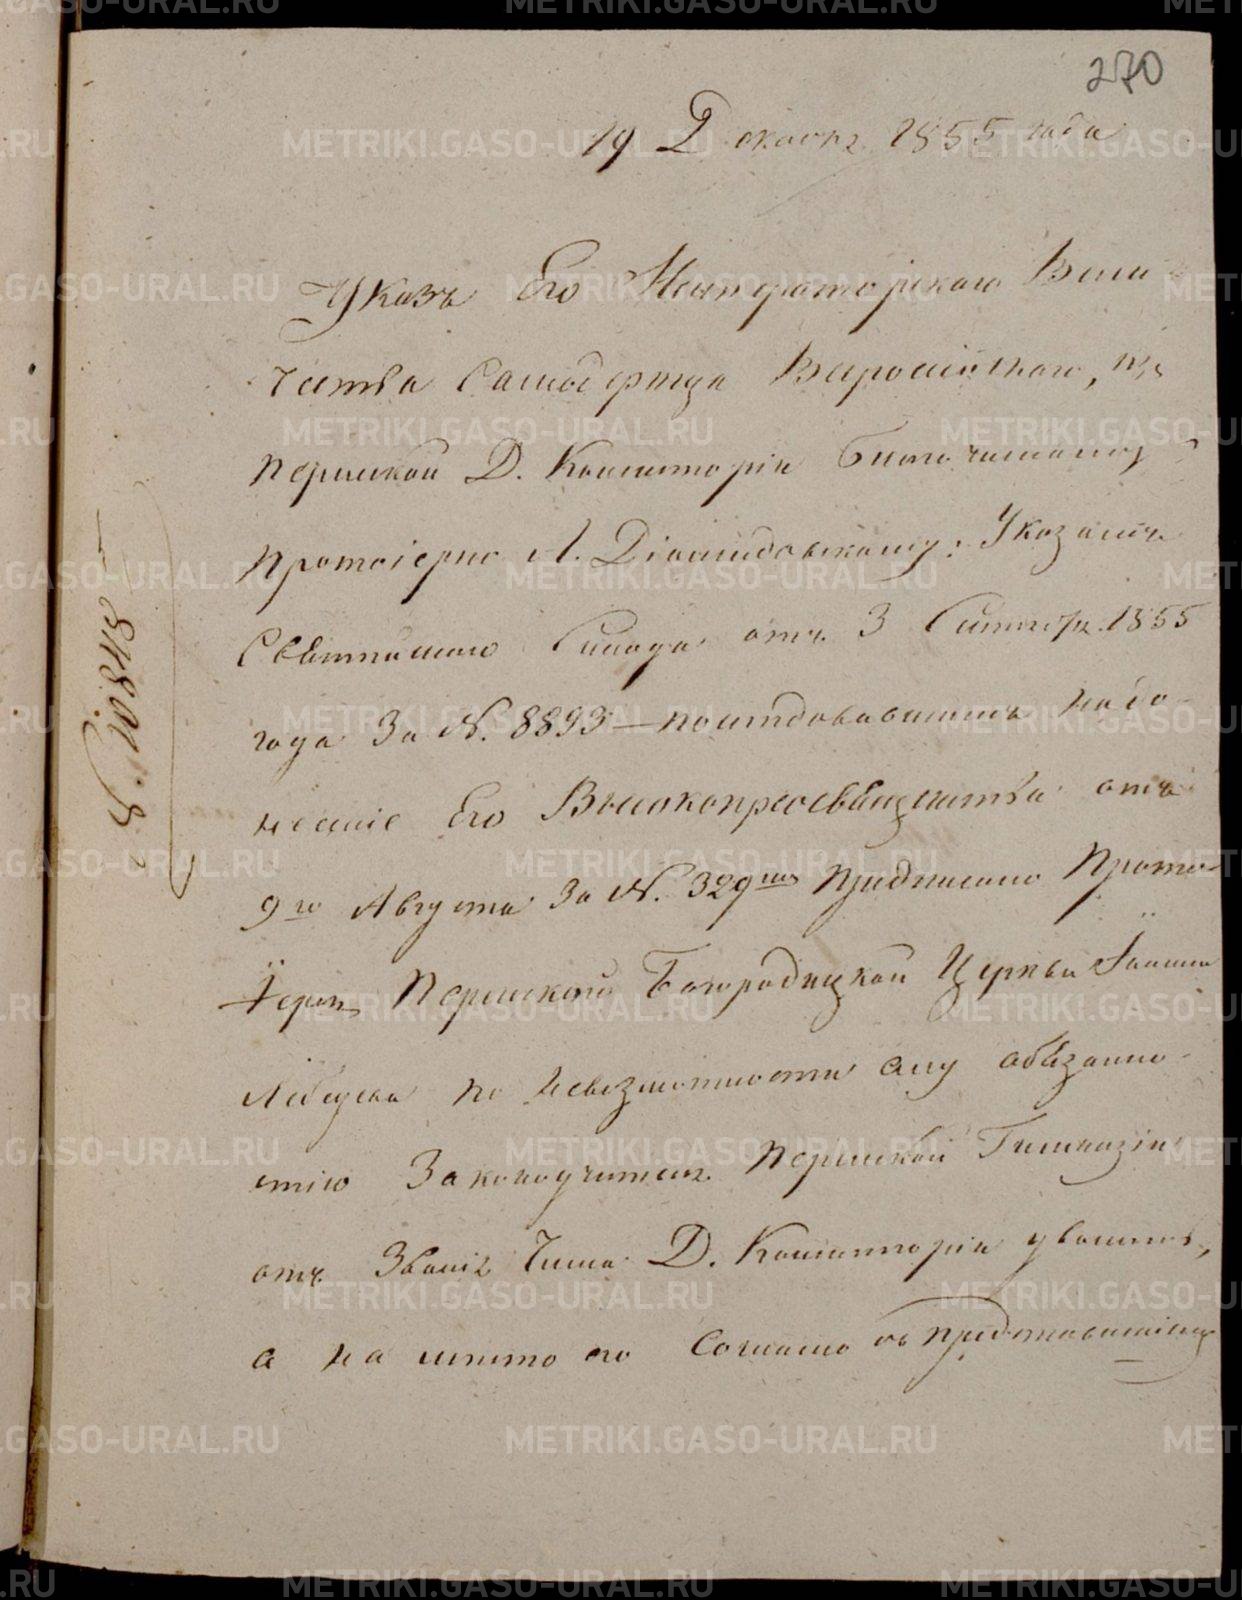 270
19 Декабря 1855 года
Указъ Его Императорскаго Вели
чества Самодержца Всероссійскаго, изъ
Пермской Д. Консисторіи Благочинному
Протоіерею А. Діомидовскому: Указомъ
Святѣйшаго Синода отъ 3 Сентября 1855
года За N. 8893 – послѣдовавшимъ на до-
несеніе Его Высокопреосвященства отъ
9го Августа За N. 329мъ Предписано Прото
Іерея Пермской Богородицкой Церкви Іоанна
по невозможности ему обязанно-
стію Законоучителя Пермской Гимназіи
отъ Званія Члена Д. Консисторіи уволить,
а на мѣсто его Согласно съ представленіемъ
N. 10848